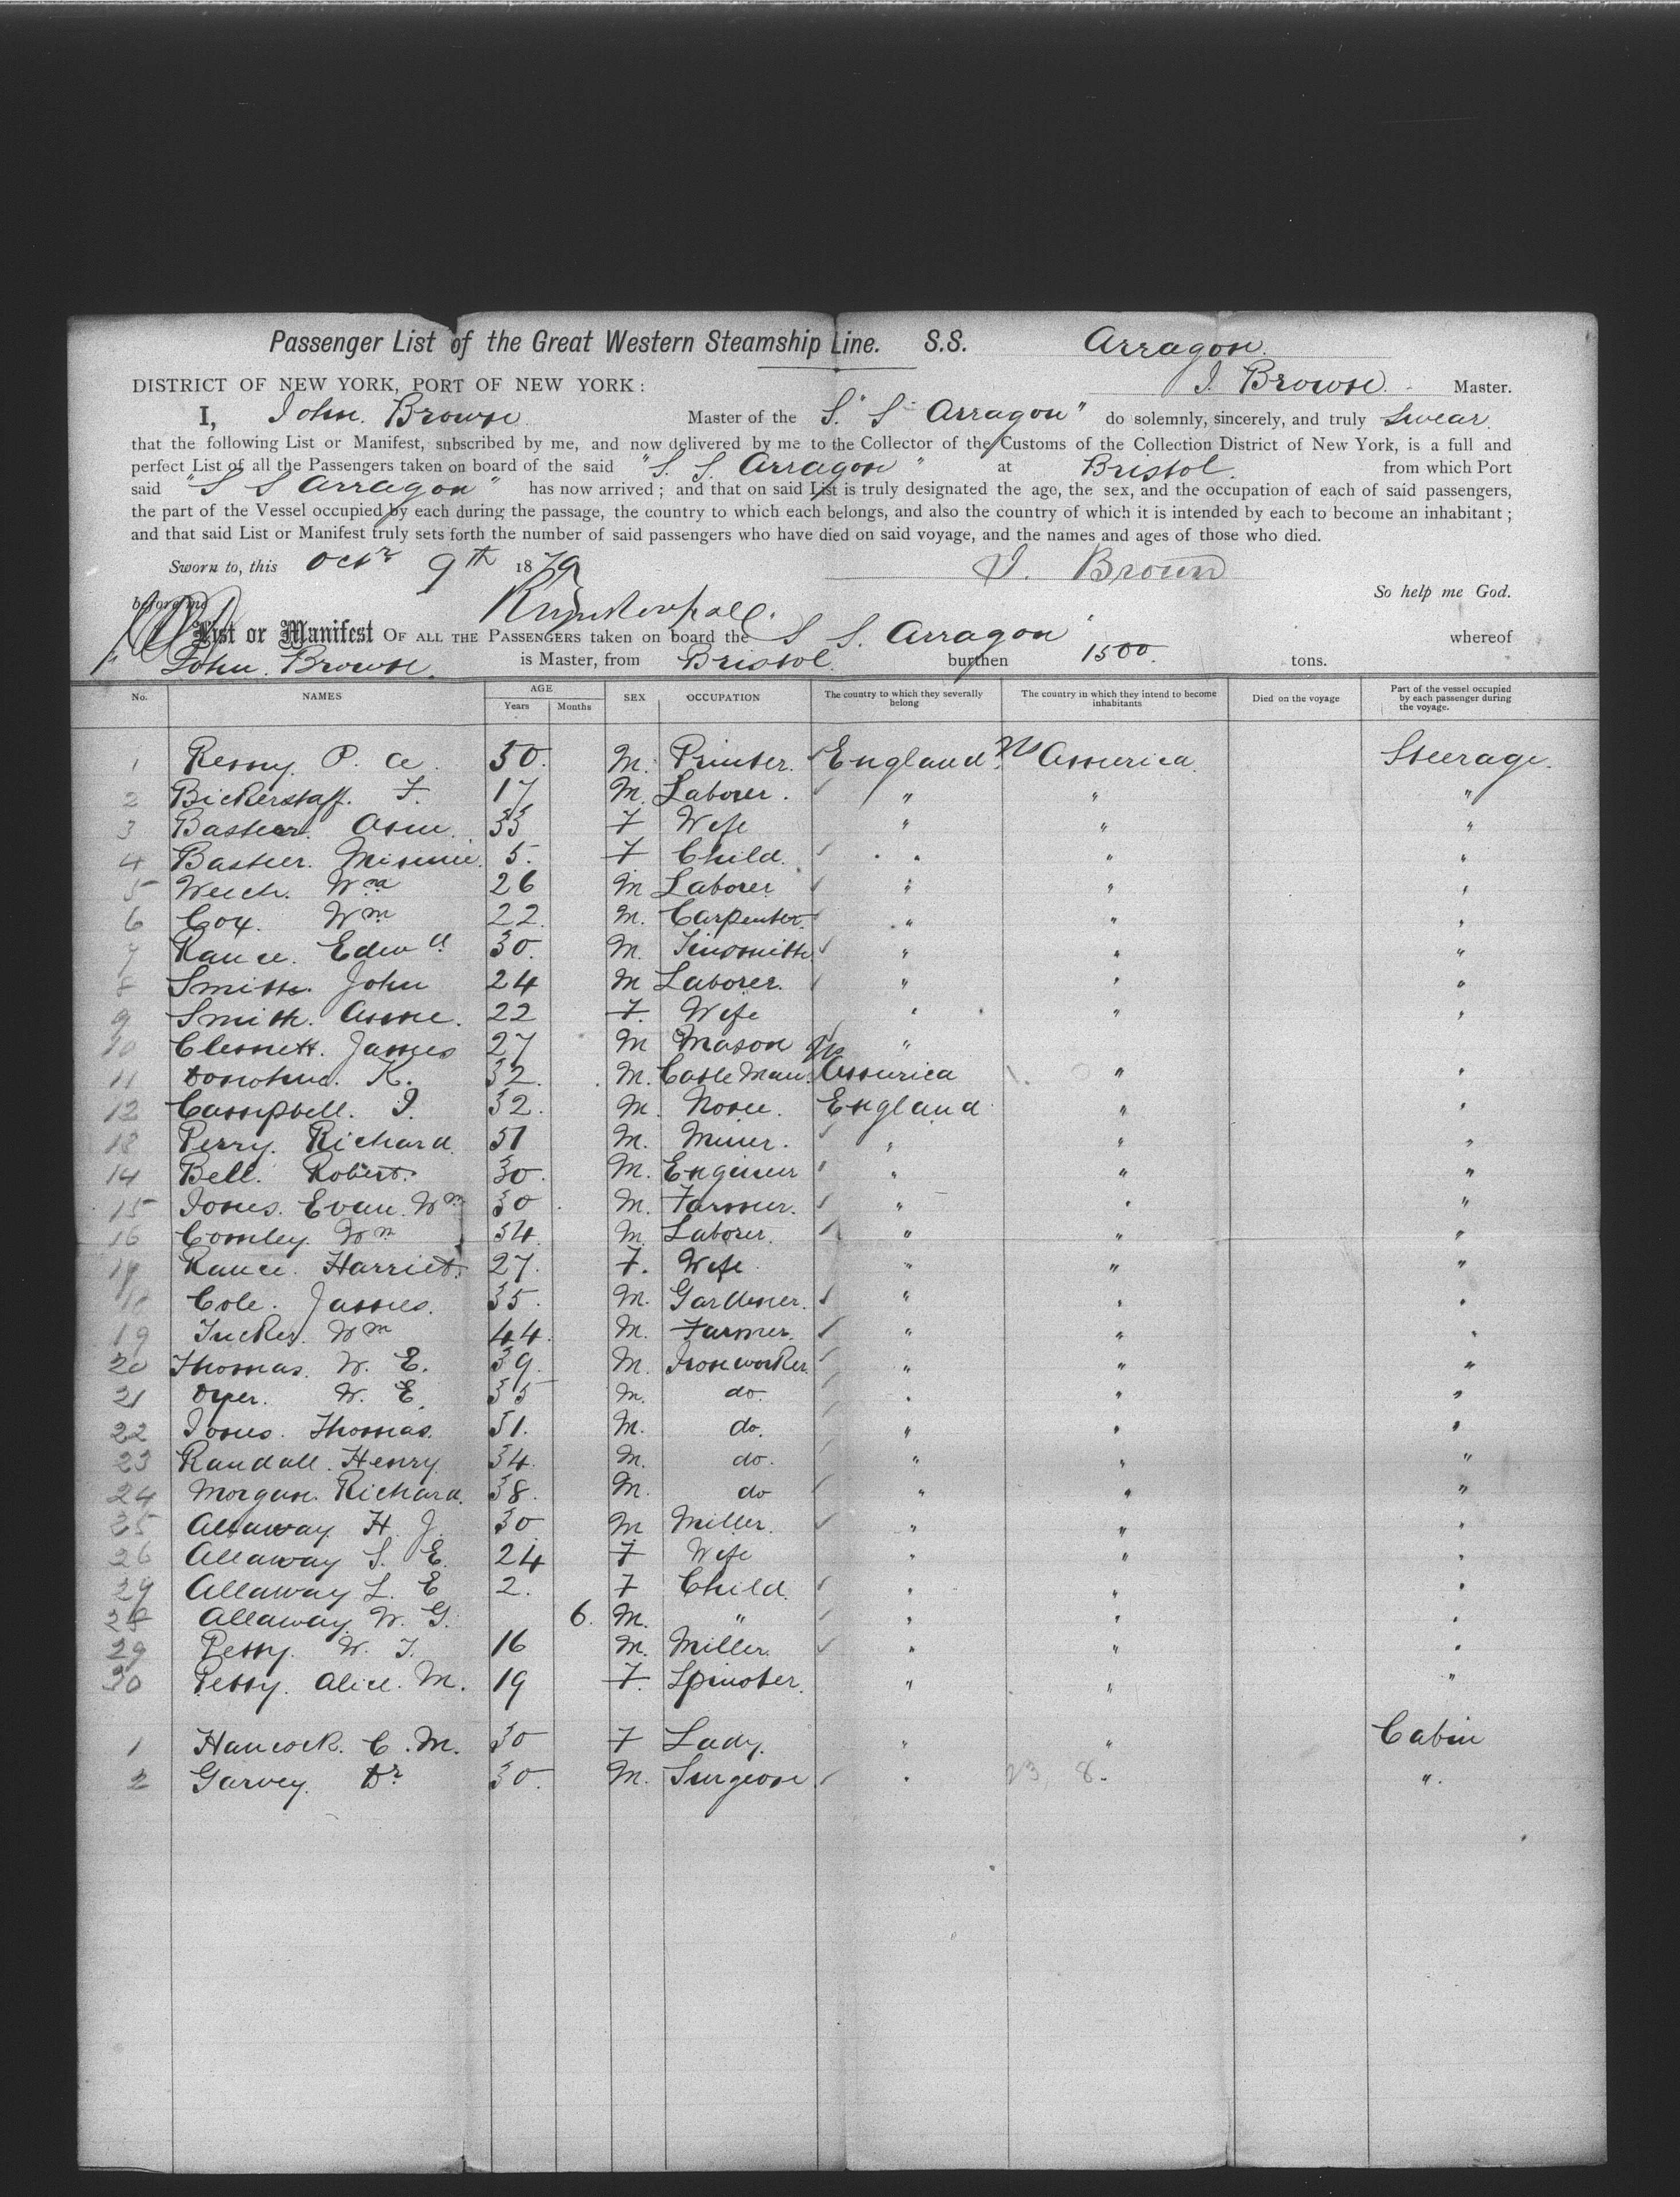 Passenger List of the Great Western Steamship Line. S.S. Arragon.
DISTRICT OF NEW YORK, PORT OF NEW YORK: J. Brown. Master.
I, John. Brown Master of the S." S" Arragon" do solemnly, sincerely, and truly swear.
that the following List or Manifest, subscribed by me, and now delivered by me to the Collector of the Customs of the Collection District of New York, is a full and
perfect List of all the Passengers taken on board of the said "S. S. Arragon" at Bristol. from which Port
said "S S Arragon" has now arrived; and that on said List is truly designated the age, the sex, and the occupation of each of said passengers,
the part of the Vessel occupied by each during the passage, the country to which each belongs, and also the country of which it is intended by each to become an inhabitant;
and that said List or Manifest truly sets forth the number of said passengers who have died on said voyage, and the names and ages of those who died.
Sworn to, this Octr 9th 1879 J. Brown
So help me God.
before me
List or Manifest OF ALL THE PASSENGERS taken on board the S S. Arragon whereof
John. Brown. is Master, from Bristol burthen 1500. tons.
No. NAMES AGE Years Months SEX OCCUPATION The country to which they severally belong The country in which they intend to become inhabitants Died on the voyage Part of the vessel occupied by each passenger during the voyage.
1 P. A. 30. M. Printer. England. N America. Steerage.
2 Bickerstaff. F. 17 M. Laborer. " " "
3 Ann. 33 F Wife " " "
4 Minnie. 5. F Child. " " "
5 Welch. Wm 26 M Laborer " " "
6 Cox. Wm 22 M. Carpenter. " " "
7 Rance. Edwd 30. M. Tinsmith " " "
8 Smith. John 24 M Laborer. " " "
9 Smith. Annie. 22 F. Wife " " "
10 Clennett. James 27 M Mason " " "
11 Donohue. K. 32. M. Cattle Man. N America " "
12 Campbell. J. 32. M. None. England " "
13 Perry. Richard 51 M. Miner. " " "
14 Bell. Robert. 30. M. Engineer " " "
15 Jones. Evan. Wm 30 M. Farmer. " " "
16 Comley. Wm 54. M. Laborer. " " "
17 Rance. Harriet. 27. F. Wife " " "
18 Cole. James. 35. M. Gardener. " " "
19 Tucker. Wm 44. M. Farmer. " " "
20 Thomas. W. E. 39. M. Ironworker " " "
21 Dyer. W. E. 35 M. do. " " "
22 Jones. Thomas. 51. M. do. " " "
23 Randall. Henry 34. M. do. " " "
24 Morgan. Richard. 38. M. do " " "
25 Allaway. H. J. 30. M Miller. " " "
26 Allaway S. E. 24 F Wife " " "
27 Allaway L. E 2. F Child. " " "
28 Allaway. W. G. 6. M. " " " "
29 Petty. W. J. 16 M. Miller. " " "
30 Petty. Alice. M. 19 F. Spinster. " " "
1 Hancock. C. M. 30 F Lady. " " Cabin
2 Garvey. Dr 30. M. Surgeon. " 23, 8. " ".